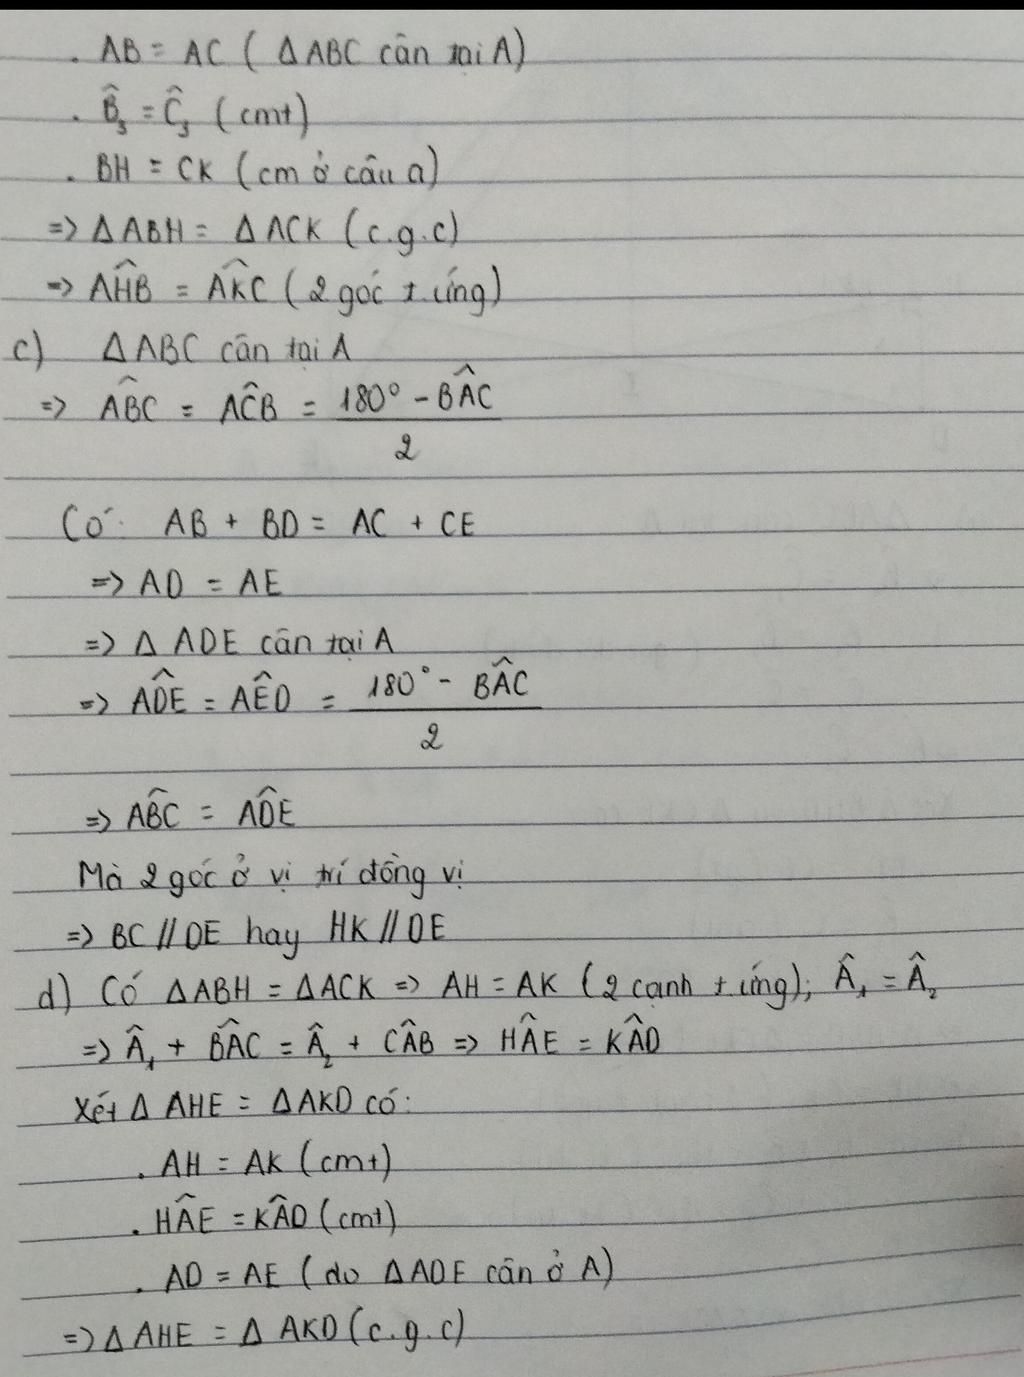 . AB = AC ( ΔABC cân tại A)
. B̂₃ = Ĉ₃ (cmt)
. BH = CK (cm ở câu a)
=> ΔABH = ΔACK (c.g.c)
=> AĤB = AK̂C (2 góc t.ứng)
c) ΔABC cân tại A
=> AB̂C = AĈB = (180° - BÂC)/2
Có: AB + BD = AC + CE
=> AD = AE
=> Δ ADE cân tại A
=> AD̂E = AÊD = (180° - BÂC)/2
=> AB̂C = AD̂E
Mà 2 góc ở vị trí đồng vị
=> BC // DE hay HK // DE
d) Có ΔABH = ΔACK => AH = AK (2 cạnh t.ứng); Â₁ = Â₂
=> Â₁ + BÂC = Â₂ + CÂB => HÂE = KÂD
Xét Δ AHE = ΔAKD có:
. AH = AK (cmt)
. HÂE = KÂD (cmt)
. AD = AE ( do ΔADE cân ở A)
=> Δ AHE = Δ AKD (c.g.c)